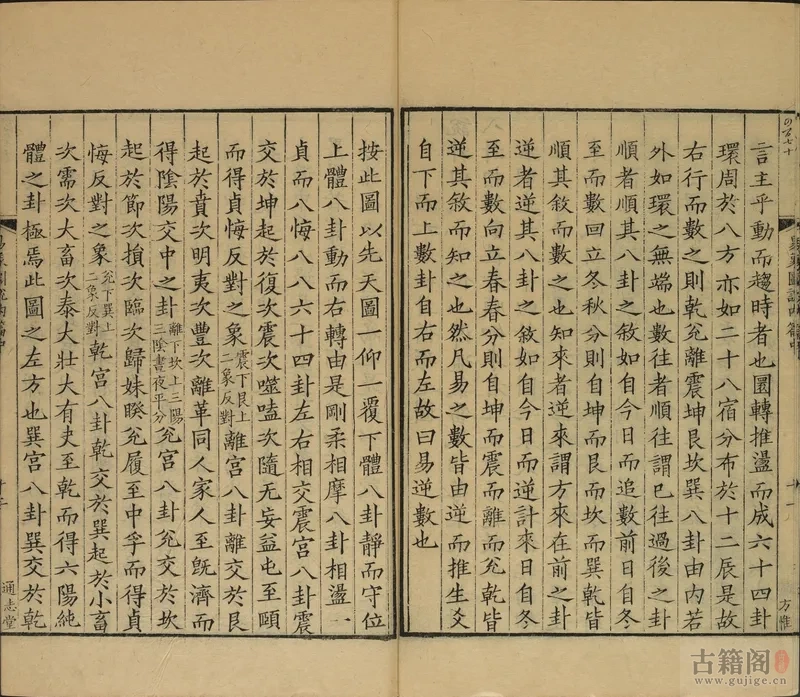 言主乎動而趨時者也圜轉推盪而成六十四卦
環周於八方亦如二十八宿分布於十二辰是故
右行而數之則乾兊離震坤艮坎巽八卦由内若
外如環之無端也數往者順往謂已往過後之卦
順者順其八卦之敘如自今日而追數前日自冬
至而數回立冬秋分則自坤而艮而坎而巽乾皆
順其敘而數之也知來者逆來謂方來在前之卦
逆者逆其八卦之敘如自今日而逆計來日自冬
至而數向立春春分則自坤而震而離而兊乾皆
逆其敘而知之也然凡易之數皆由逆而推生爻
自下而上數卦自右而左故曰易逆數也
方惟
按此圖以先天圖一仰一覆下體八卦靜而守位
上體八卦動而右轉由是剛柔相摩八卦相盪一
貞而八悔八八六十四卦左右相交震宮八卦震
交於坤起於復次震次噬嗑次隨无妄益屯至頤
而得貞悔反對之象震下艮上二象反對離宮八卦離交於艮
起於賁次明夷次豐次離革同人家人至旣濟而
得陰陽交中之卦離下坎上三陽三陰晝夜平分兊宮八卦兊交於坎
起於節次損次臨次歸妹睽兊履至中孚而得貞
悔反對之象兊下巽上二象反對乾宮八卦乾交於巽起於小畜
次需次大畜次泰大壯大有夬至乾而得六陽純
體之卦極焉此圖之左方也巽宮八卦巽交於乾
通志堂
古籍阁
www.gujige.cn